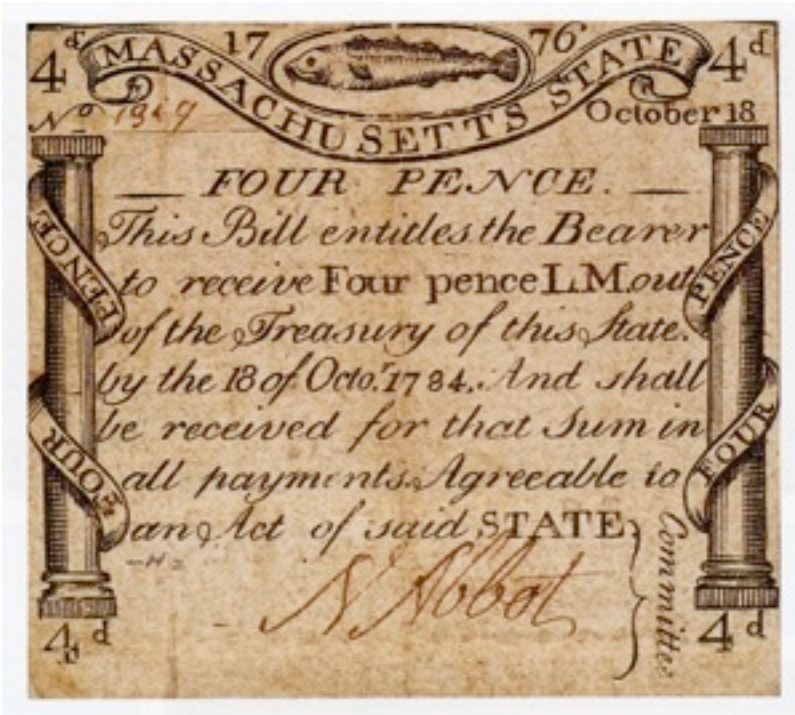 4d 17 76 4d
MASSACHUSETTS STATE
No 1369
October 18
FOUR PENCE.
This Bill entitles the Bearer
to receive Four pence L.M. out
of the Treasury of this State.
by the 18 of Octo.r 1784. And shall
be received for that Sum in
all payments Agreeable to
an Act of said STATE
N Abbot
Committee
PENCE
FOUR
PENCE
FOUR
4d
4d